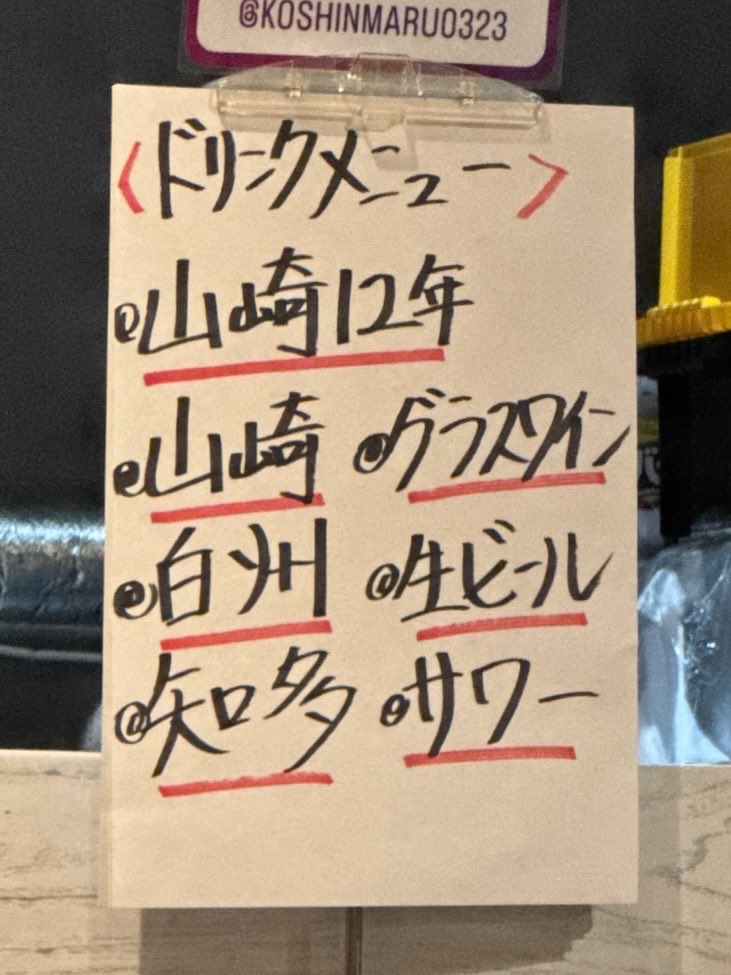 @KOSHINMARU0323
〈ドリンクメニュー〉
山崎12年
山崎 グラスワイン
白州 生ビール
知多 サワー